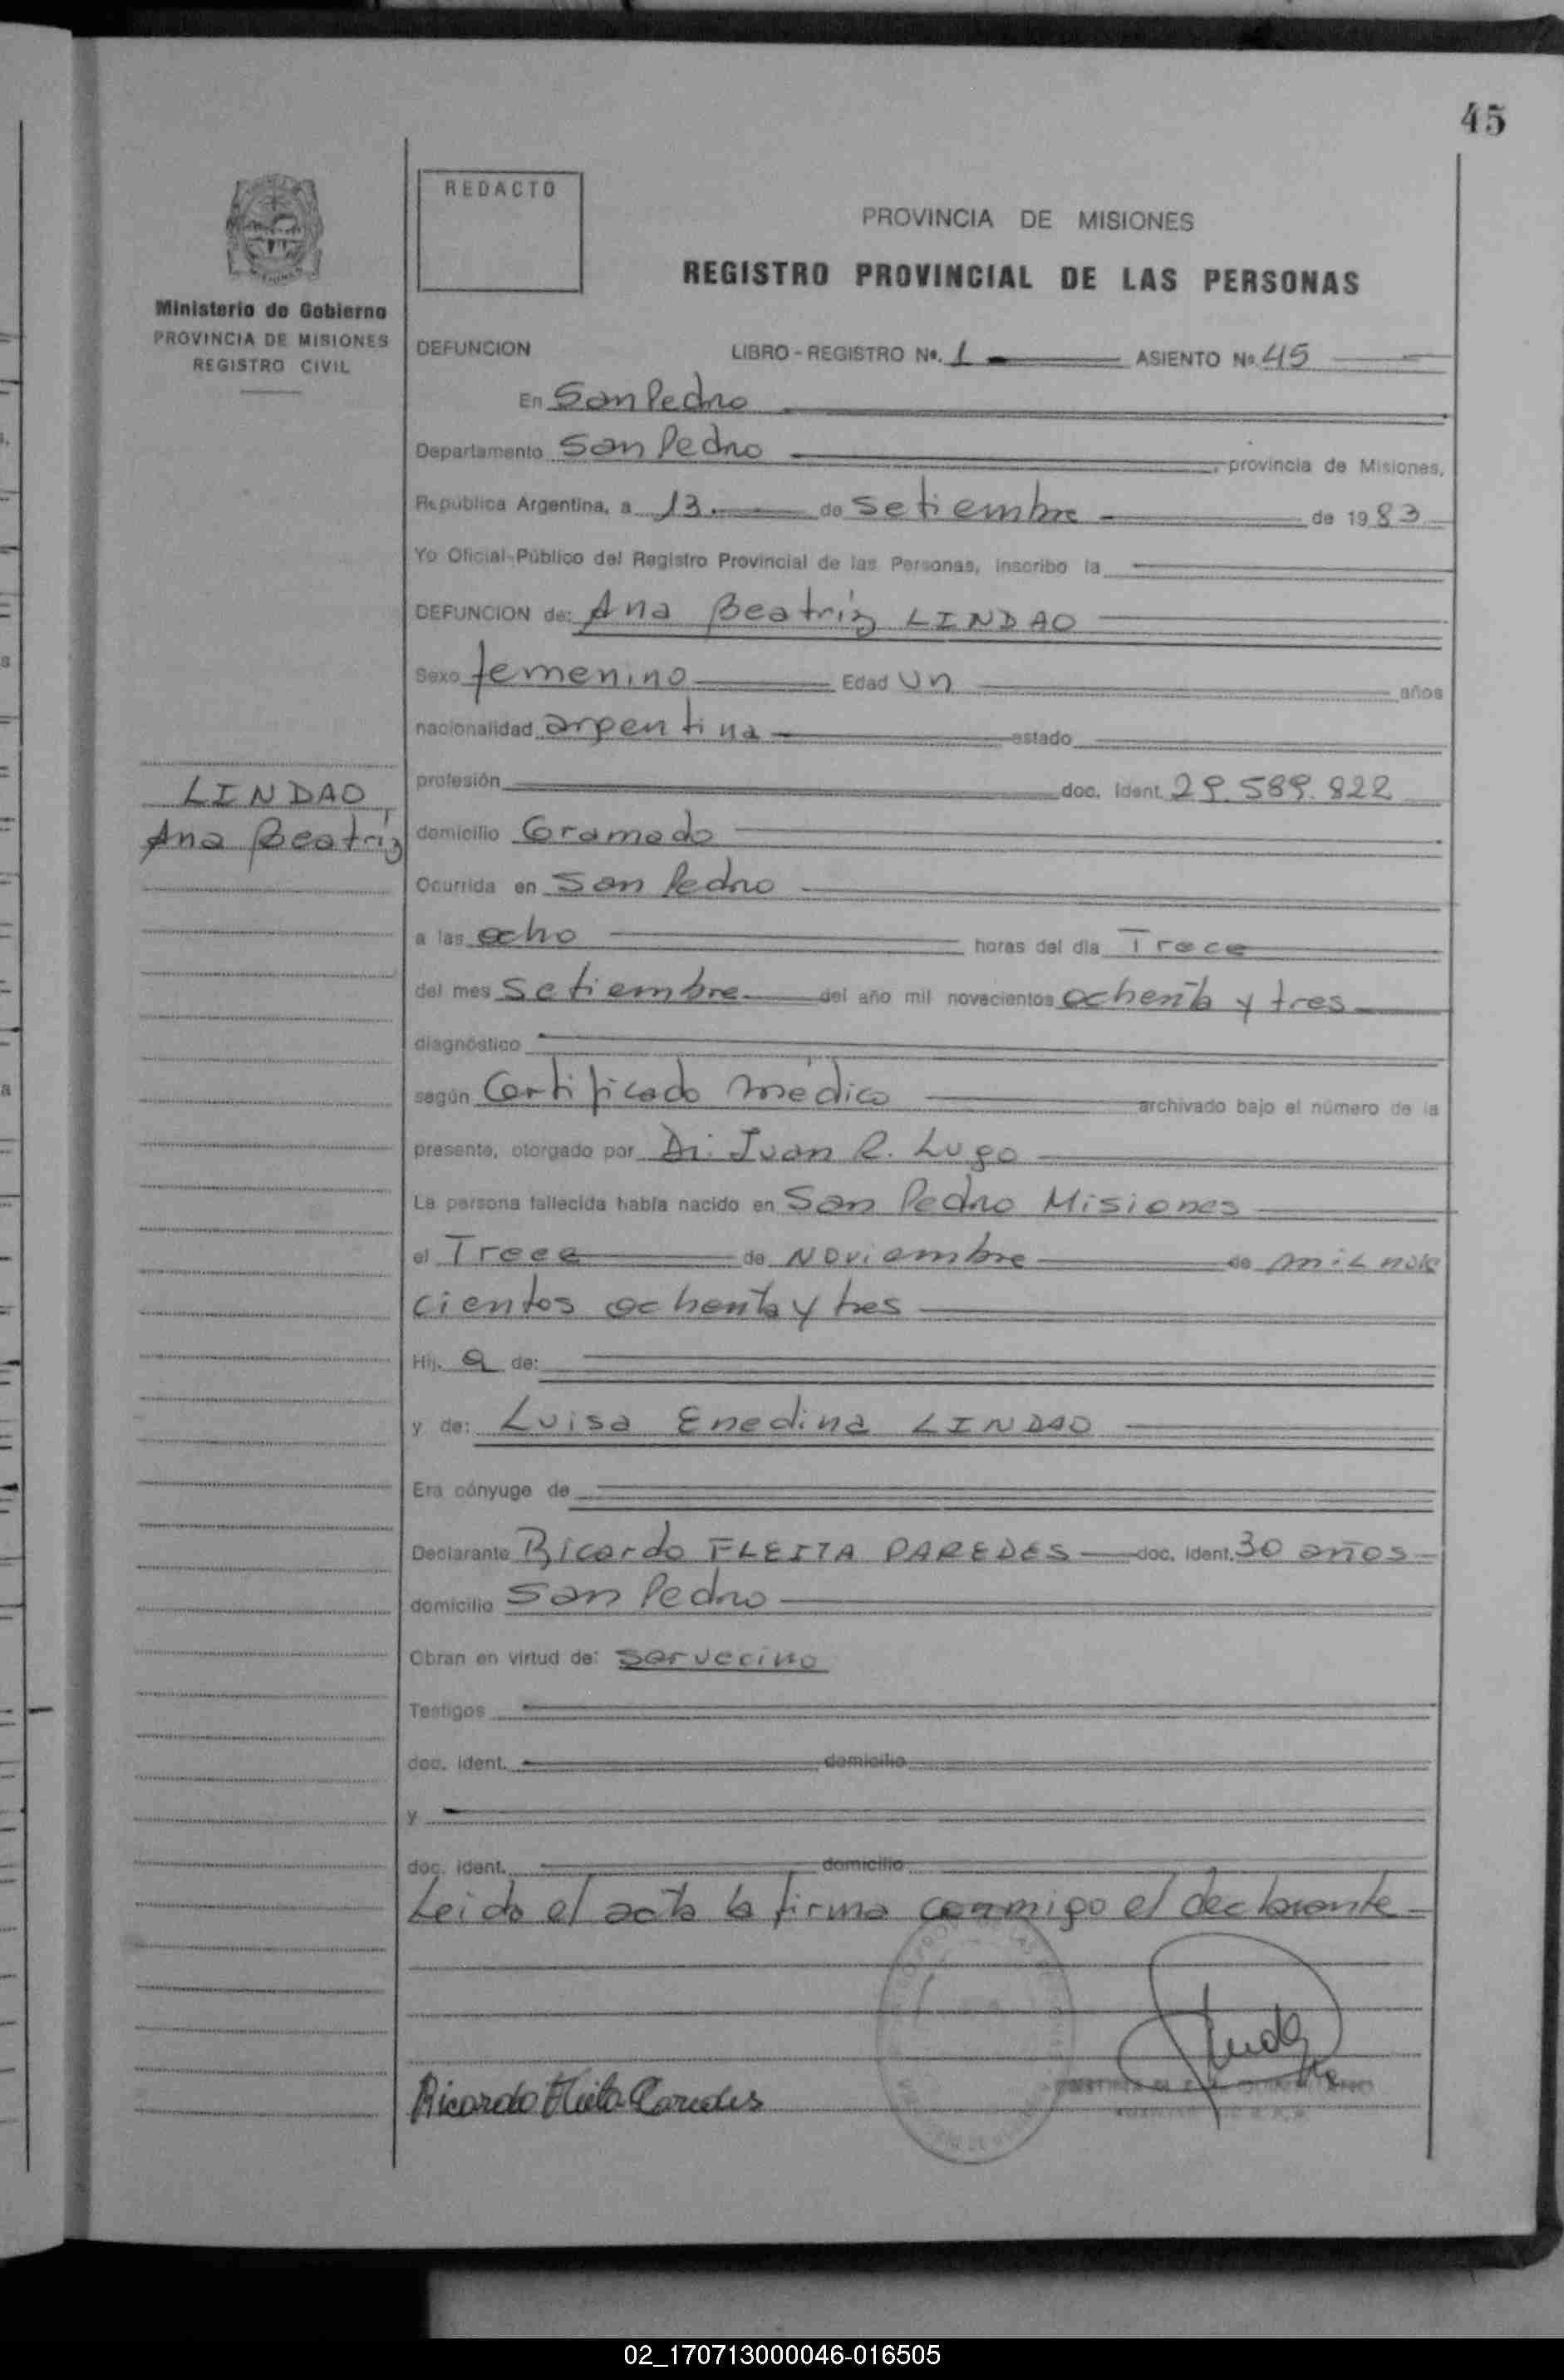 45
REDACTO
PROVINCIA DE MISIONES
REGISTRO PROVINCIAL DE LAS PERSONAS
Ministerio de Gobierno
PROVINCIA DE MISIONES
REGISTRO CIVIL
DEFUNCION LIBRO - REGISTRO Nº. 1 ASIENTO Nº 45
En San Pedro
Departamento San Pedro, provincia de Misiones,
República Argentina, a 13 de Setiembre de 1983
Yo Oficial Público del Registro Provincial de las Personas, inscribo la
DEFUNCION de: Ana Beatriz LINDAO
Sexo femenino Edad un años
nacionalidad argentina estado
profesión doc. Ident. 29.589.822
LINDAO,
Ana Beatriz
domicilio Gramado
Ocurrida en San Pedro
a las ocho horas del día Trece
del mes Setiembre del año mil novecientos ochenta y tres
diagnóstico
según Certificado médico archivado bajo el número de la
presente, otorgado por Dr. Juan R. Lugo
La persona fallecida había nacido en San Pedro Misiones
el Trece de Noviembre de mil nove
cientos ochenta y tres
Hij. a de:
y de: Luisa Enedina LINDAO
Era cónyuge de
Declarante Ricardo FLEITA PAREDES doc. Ident. 30 años
domicilio San Pedro
Obran en virtud de: ser vecino
Testigos
doc. Ident. domicilio
y
doc. ident. domicilio
Leida el acta la firma conmigo el declarante
Ricardo Fleita Paredes
02_170713000046-016505